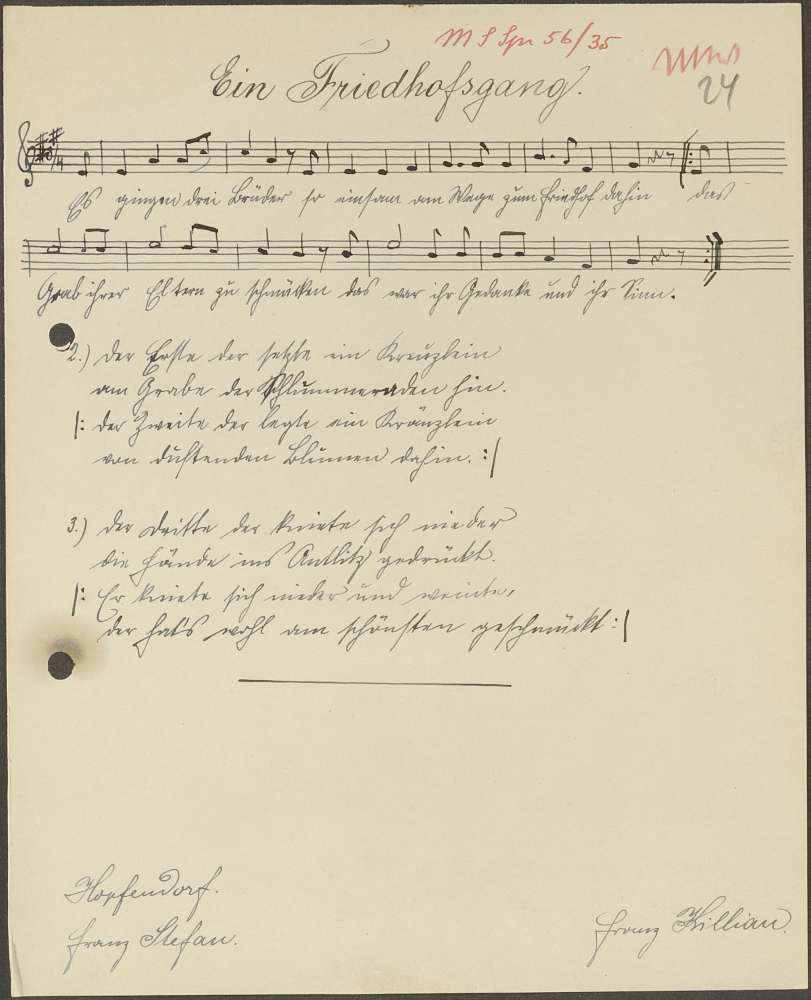 M S Spr 56/35
24
Ein Friedhofsgang.
Es gingen drei Brüder so einsam am Wege zum Friedhof dahin das
Grab ihrer Eltern zu schmücken das war ihr Gedanke und ihr Sinn.
2.) Der Erste der setzte ein Kreuzlein
am Grabe der Schlummernden hin.
|: Der Zweite der legte ein Kränzlein
von duftenden Blumen dahin. :|
3.) Der Dritte der kniete sich nieder
die Hände ins Antlitz gedrückt.
|: Er kniete sich nieder und weinte,
der hat's wohl am schönsten geschmückt :|
Hopfendorf.
Franz Stefan.
Franz Killian.